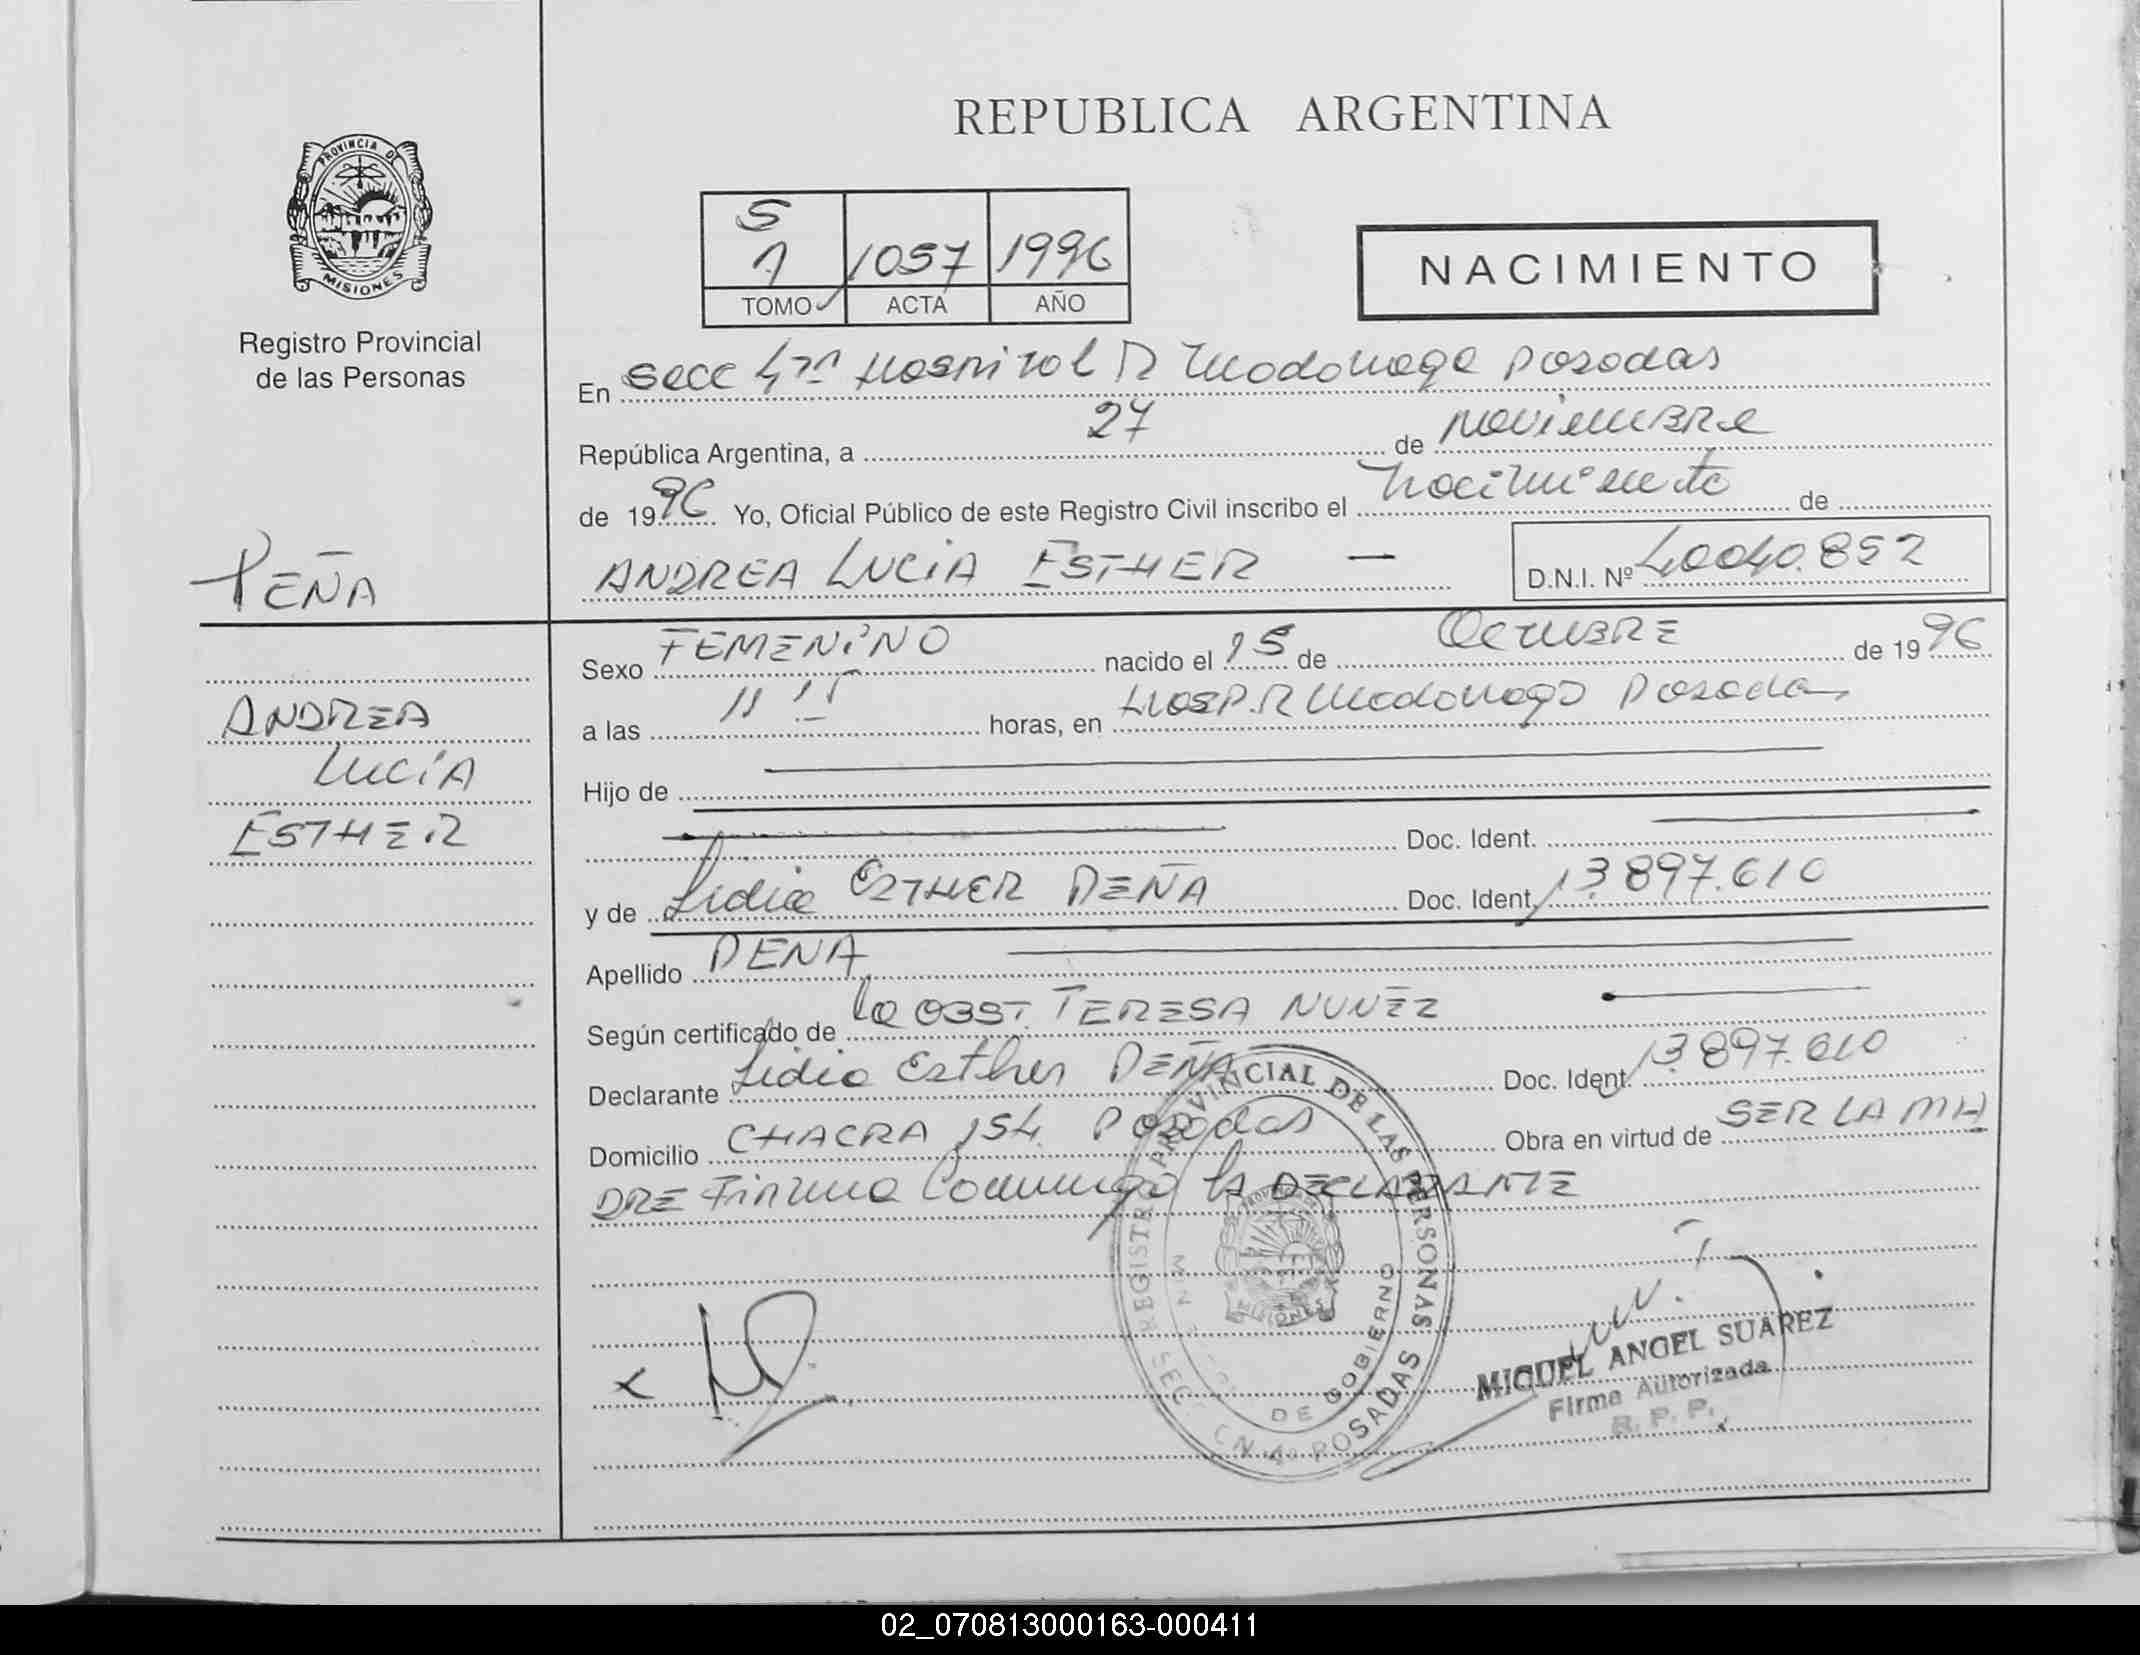 REPUBLICA ARGENTINA
PROVINCIA DE
MISIONES
Registro Provincial
de las Personas
S
1 1057 1996
TOMO ACTA AÑO
NACIMIENTO
En Secc 4ta Hospital R Madariaga Posadas
República Argentina, a 27 de noviembre
de 1996 Yo, Oficial Público de este Registro Civil inscribo el nacimiento de
PEÑA
ANDREA LUCIA ESTHER — D.N.I. Nº 40040.852
Sexo FEMENINO nacido el 15 de OCTUBRE de 1996
a las 11 15 horas, en Hosp. R Madariaga Posadas
ANDREA
LUCIA
ESTHER
Hijo de
Doc. Ident.
y de Lidia ESTHER PEÑA Doc. Ident. 13.897.610
Apellido PEÑA
Según certificado de la OBST. TERESA NUÑEZ
Declarante Lidia Esther PEÑA Doc. Ident. 13.897.610
Domicilio CHACRA 154 Posadas Obra en virtud de SER LA MA
DRE Firma Conmigo LA DECLARANTE
REGISTRO PROVINCIAL DE LAS PERSONAS
DE GOBIERNO
POSADAS
x
MIGUEL ANGEL SUAREZ
Firma Autorizada
R. P. P.
02_070813000163-000411